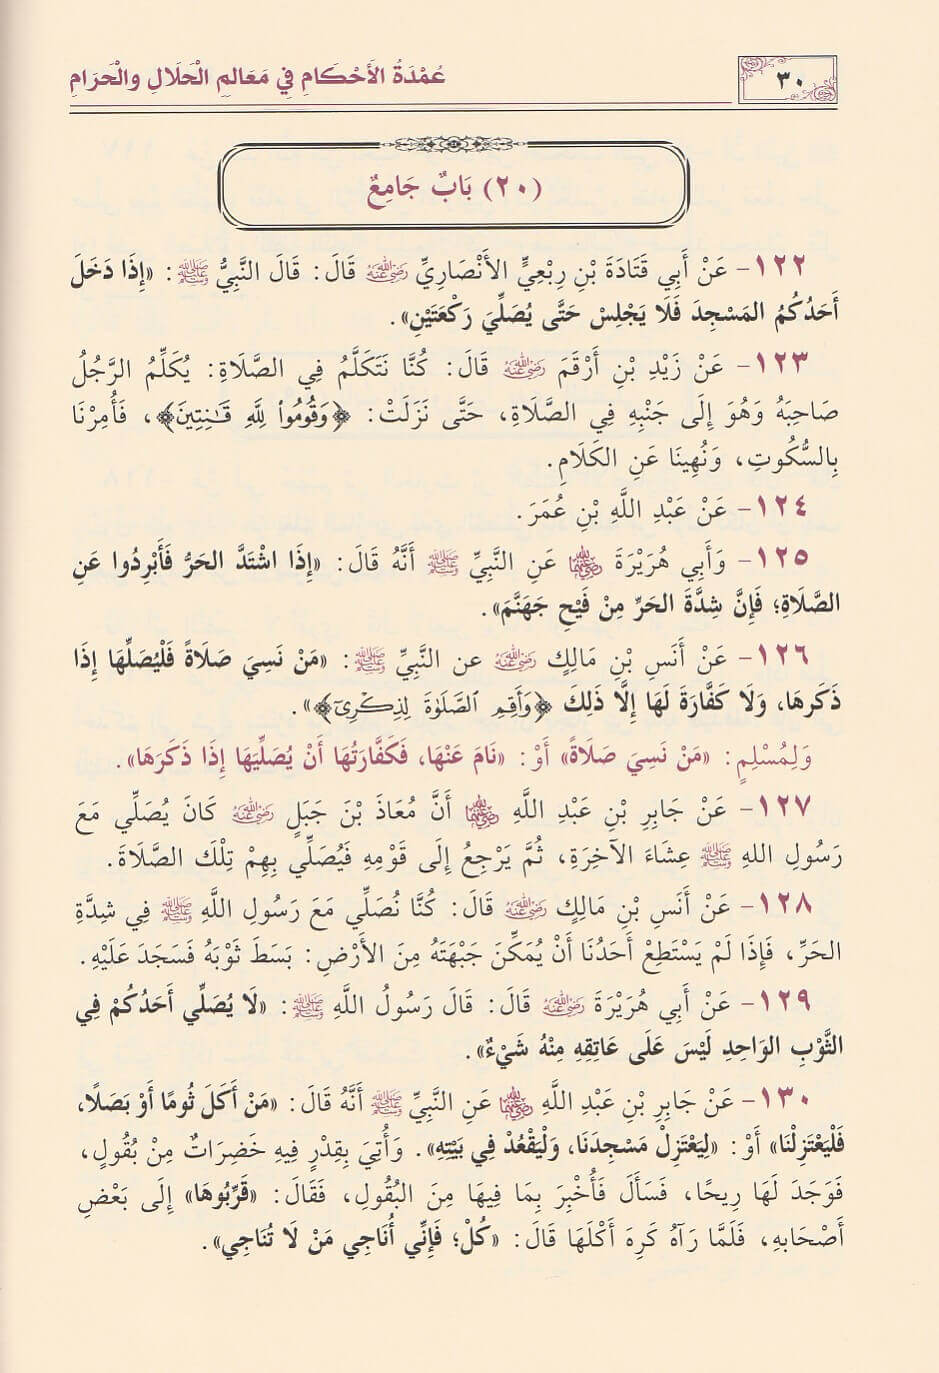 عُمْدَةُ الأَحْكَامِ فِي مَعَالِمِ الْحَلَالِ والْحَرَامِ
٣٠
(٢٠) بَابٌ جَامِعٌ
١٢٢- عَنْ أَبِي قَتَادَةَ بْنِ رِبْعِيٍّ الأَنْصَارِيِّ رضي الله عنه قَالَ: قَالَ النَّبِيُّ ﷺ: «إِذَا دَخَلَ
أَحَدُكُمُ المَسْجِدَ فَلَا يَجْلِسْ حَتَّى يُصَلِّيَ رَكْعَتَيْنِ».
١٢٣- عَنْ زَيْدِ بْنِ أَرْقَمَ رضي الله عنه قَالَ: كُنَّا نَتَكَلَّمُ فِي الصَّلَاةِ: يُكَلِّمُ الرَّجُلُ
صَاحِبَهُ وَهُوَ إِلَى جَنْبِهِ فِي الصَّلَاةِ، حَتَّى نَزَلَتْ: ﴿وَقُومُوا۟ لِلَّهِ قَـٰنِتِينَ﴾، فَأُمِرْنَا
بِالسُّكُوتِ، وَنُهِينَا عَنِ الكَلَامِ.
١٢٤- عَنْ عَبْدِ اللَّهِ بْنِ عُمَرَ.
١٢٥- وَأَبِي هُرَيْرَةَ رضي الله عنهما عَنِ النَّبِيِّ ﷺ أَنَّهُ قَالَ: «إِذَا اشْتَدَّ الحَرُّ فَأَبْرِدُوا عَنِ
الصَّلَاةِ؛ فَإِنَّ شِدَّةَ الحَرِّ مِنْ فَيْحِ جَهَنَّمَ».
١٢٦- عَنْ أَنَسِ بْنِ مَالِكٍ رضي الله عنه عن النَّبِيِّ ﷺ: «مَنْ نَسِيَ صَلَاةً فَلْيُصَلِّهَا إِذَا
ذَكَرَهَا، وَلَا كَفَّارَةَ لَهَا إِلَّا ذَلِكَ ﴿وَأَقِمِ ٱلصَّلَوٰةَ لِذِكْرِىٓ﴾».
وَلِمُسْلِمٍ: «مَنْ نَسِيَ صَلَاةً» أَوْ: «نَامَ عَنْهَا، فَكَفَّارَتُهَا أَنْ يُصَلِّيَهَا إِذَا ذَكَرَهَا».
١٢٧- عَنْ جَابِرِ بْنِ عَبْدِ اللَّهِ رضي الله عنهما أَنَّ مُعَاذَ بْنَ جَبَلٍ رضي الله عنه كَانَ يُصَلِّي مَعَ
رَسُولِ اللهِ ﷺ عِشَاءَ الآخِرَةِ، ثُمَّ يَرْجِعُ إِلَى قَوْمِهِ فَيُصَلِّي بِهِمْ تِلْكَ الصَّلَاةَ.
١٢٨- عَنْ أَنَسِ بْنِ مَالِكٍ رضي الله عنه قَالَ: كُنَّا نُصَلِّي مَعَ رَسُولِ اللَّهِ ﷺ فِي شِدَّةِ
الحَرِّ، فَإِذَا لَمْ يَسْتَطِعْ أَحَدُنَا أَنْ يُمَكِّنَ جَبْهَتَهُ مِنَ الأَرْضِ: بَسَطَ ثَوْبَهُ فَسَجَدَ عَلَيْهِ.
١٢٩- عَنْ أَبِي هُرَيْرَةَ رضي الله عنه قَالَ: قَالَ رَسُولُ اللَّهِ ﷺ: «لَا يُصَلِّي أَحَدُكُمْ فِي
الثَّوْبِ الوَاحِدِ لَيْسَ عَلَى عَاتِقِهِ مِنْهُ شَيْءٌ».
١٣٠- عَنْ جَابِرِ بْنِ عَبْدِ اللَّهِ رضي الله عنهما عَنِ النَّبِيِّ ﷺ أَنَّهُ قَالَ: «مَنْ أَكَلَ ثُومًا أَوْ بَصَلًا،
فَلْيَعْتَزِلْنَا» أَوْ: «لِيَعْتَزِلْ مَسْجِدَنَا، وَلْيَقْعُدْ فِي بَيْتِهِ». وَأُتِيَ بِقِدْرٍ فِيهِ خَضِرَاتٌ مِنْ بُقُولٍ،
فَوَجَدَ لَهَا رِيحًا، فَسَأَلَ فَأُخْبِرَ بِمَا فِيهَا مِنَ البُقُولِ، فَقَالَ: «قَرِّبُوهَا» إِلَى بَعْضِ
أَصْحَابِهِ، فَلَمَّا رَآهُ كَرِهَ أَكْلَهَا قَالَ: «كُلْ؛ فَإِنِّي أُنَاجِي مَنْ لَا تُنَاجِي».